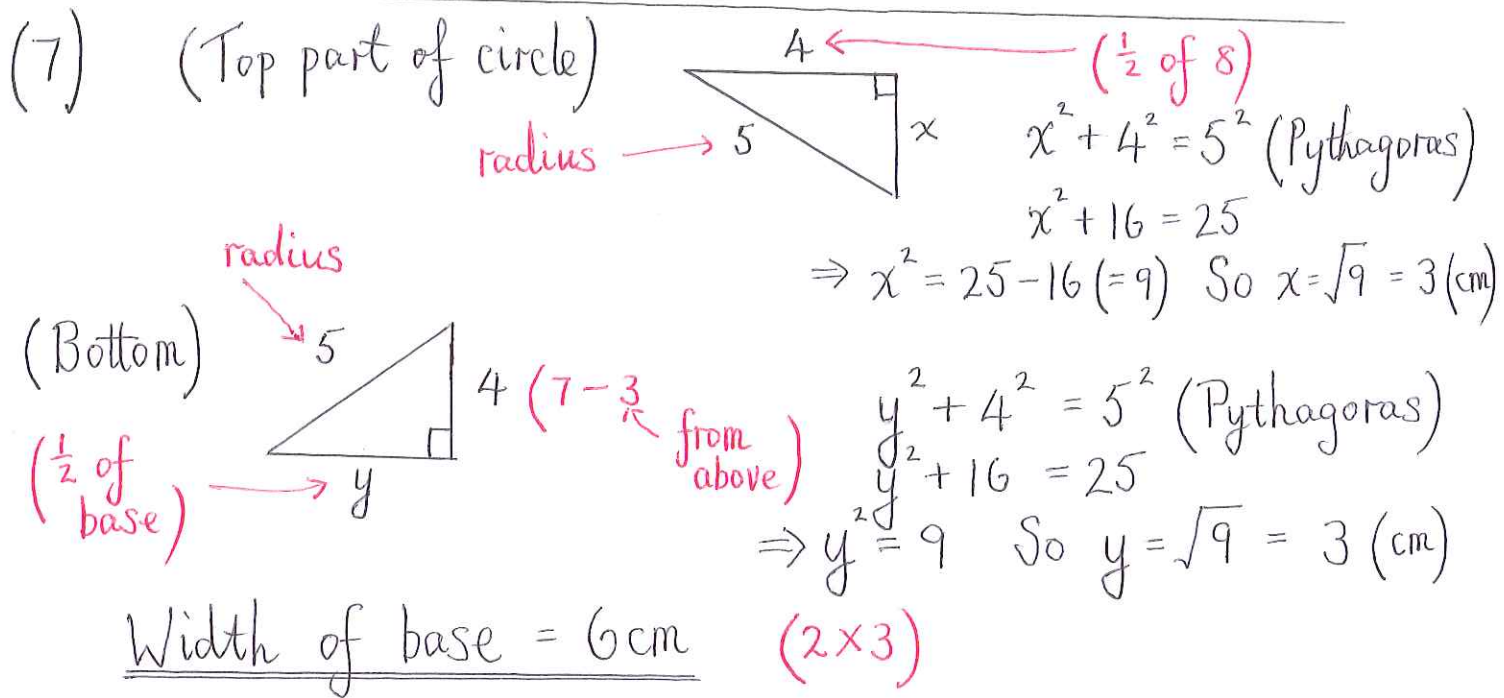 (7) (Top part of circle)
4 (1/2 of 8)
radius → 5 x
x² + 4² = 5² (Pythagoras)
x² + 16 = 25
⇒ x² = 25 - 16 (= 9) So x = √9 = 3 (cm)
radius
(Bottom) 5
4 (7 - 3 from above)
(1/2 of base) → y
y² + 4² = 5² (Pythagoras)
y² + 16 = 25
⇒ y² = 9 So y = √9 = 3 (cm)
Width of base = 6cm (2×3)